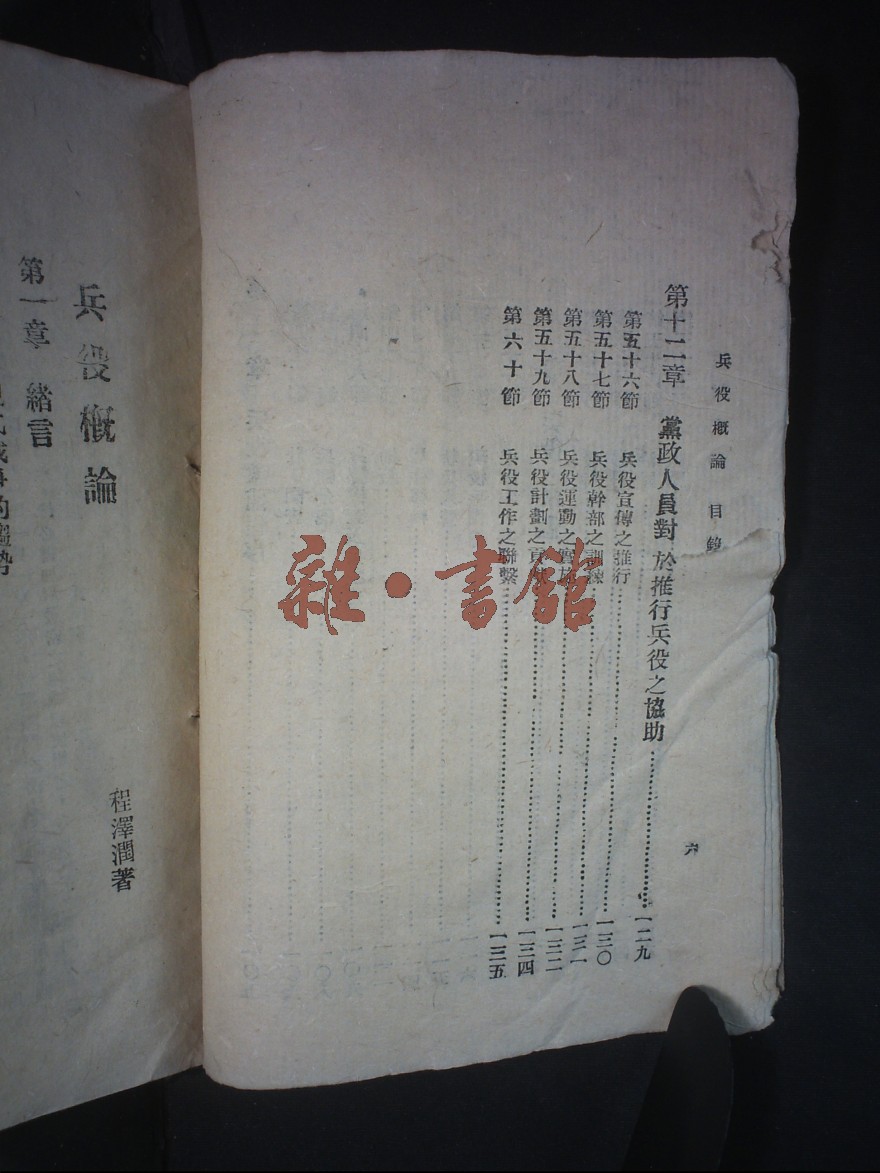 兵役概論 目錄 六
第十二章 黨政人員對於推行兵役之協助……一二九
第五十六節 兵役宣傳之推行……一三〇
第五十七節 兵役幹部之訓練……一三一
第五十八節 兵役運動之實……一三二
第五十九節 兵役計劃之貢……一三四
第六十節 兵役工作之聯繫……一三五
雜·書館
程澤潤著
兵役概論
第一章 緒言
的趨勢